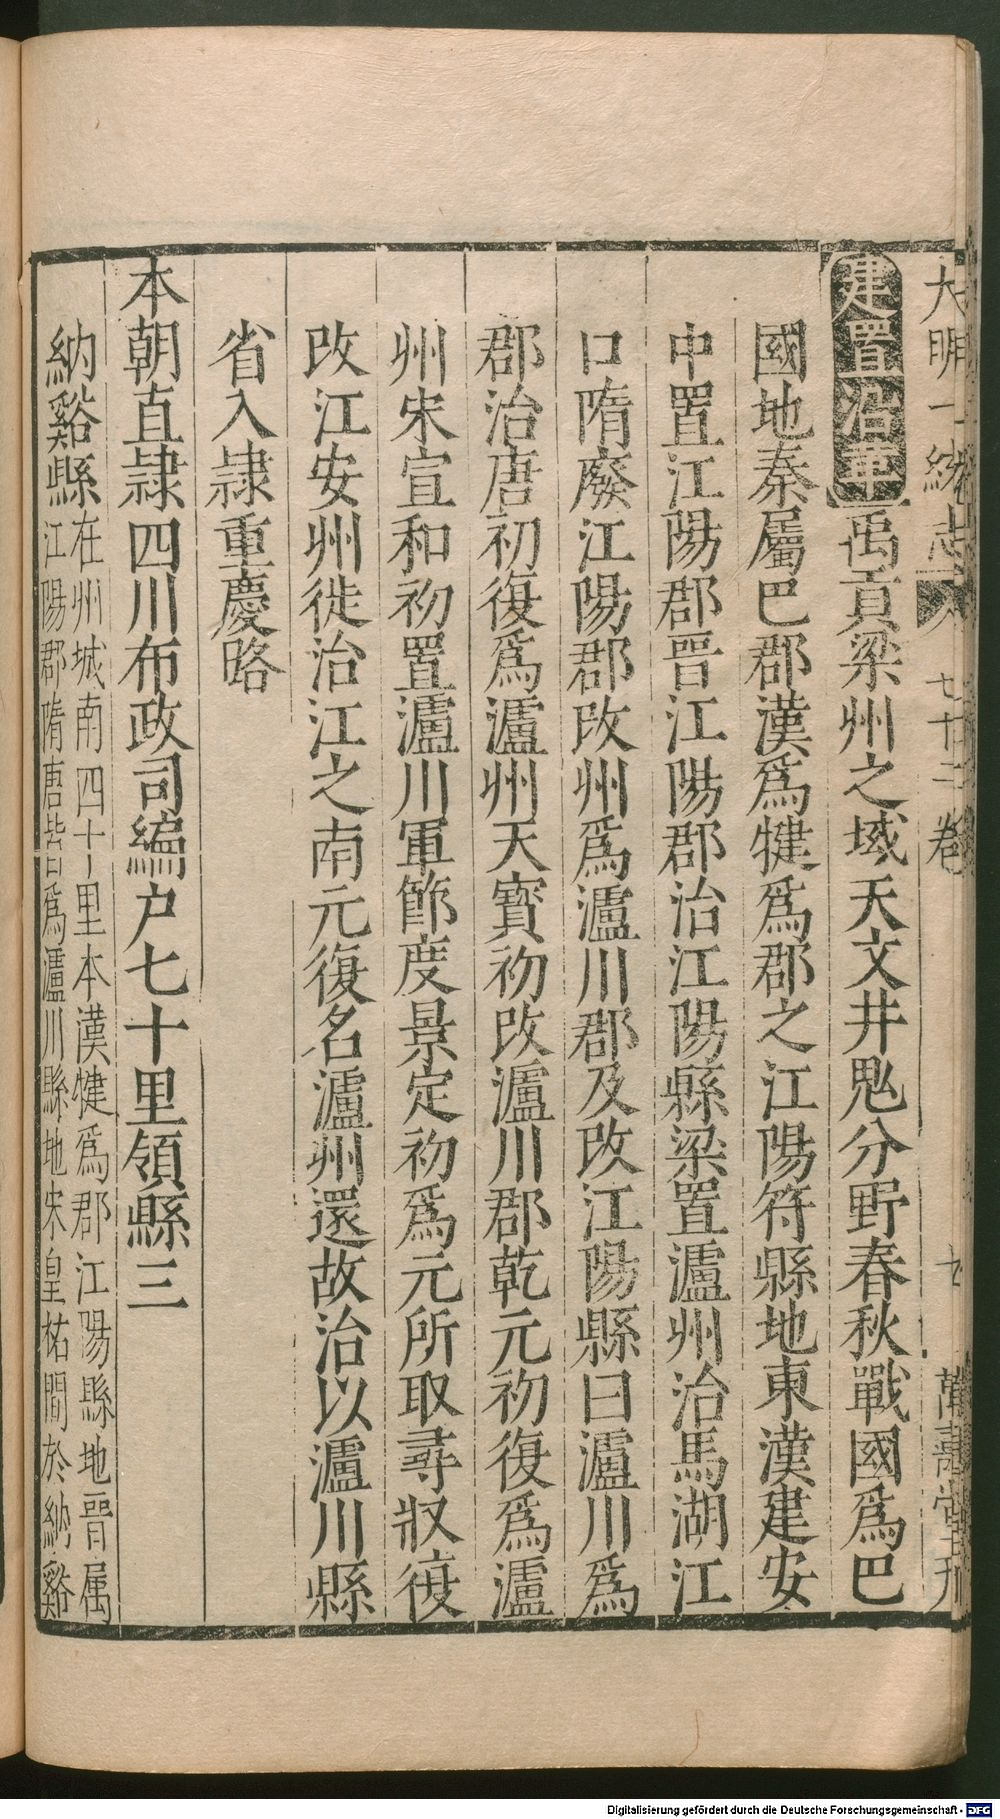 大明一統志 卷 七十二卷 七 萬壽堂刊
建置沿革 禹貢梁州之域天文井鬼分野春秋戰國爲巴
國地秦屬巴郡漢爲犍爲郡之江陽符縣地東漢建安
中置江陽郡晉江陽郡治江陽縣梁置瀘州治馬湖江
口隋廢江陽郡改州爲瀘川郡及改江陽縣曰瀘川爲
郡治唐初復爲瀘州天寶初改瀘川郡乾元初復爲瀘
州宋宣和初置瀘川軍節度景定初爲元所取尋收復
改江安州徙治江之南元復名瀘州還故治以瀘川縣
省入隷重慶路
本朝直隷四川布政司編户七十里領縣三
納谿縣 在州城南四十里本漢犍爲郡江陽縣地晉属
江陽郡隋唐皆爲瀘川縣地宋皇祐間於納谿
Digitalisierung gefördert durch die Deutsche Forschungsgemeinschaft - DFG